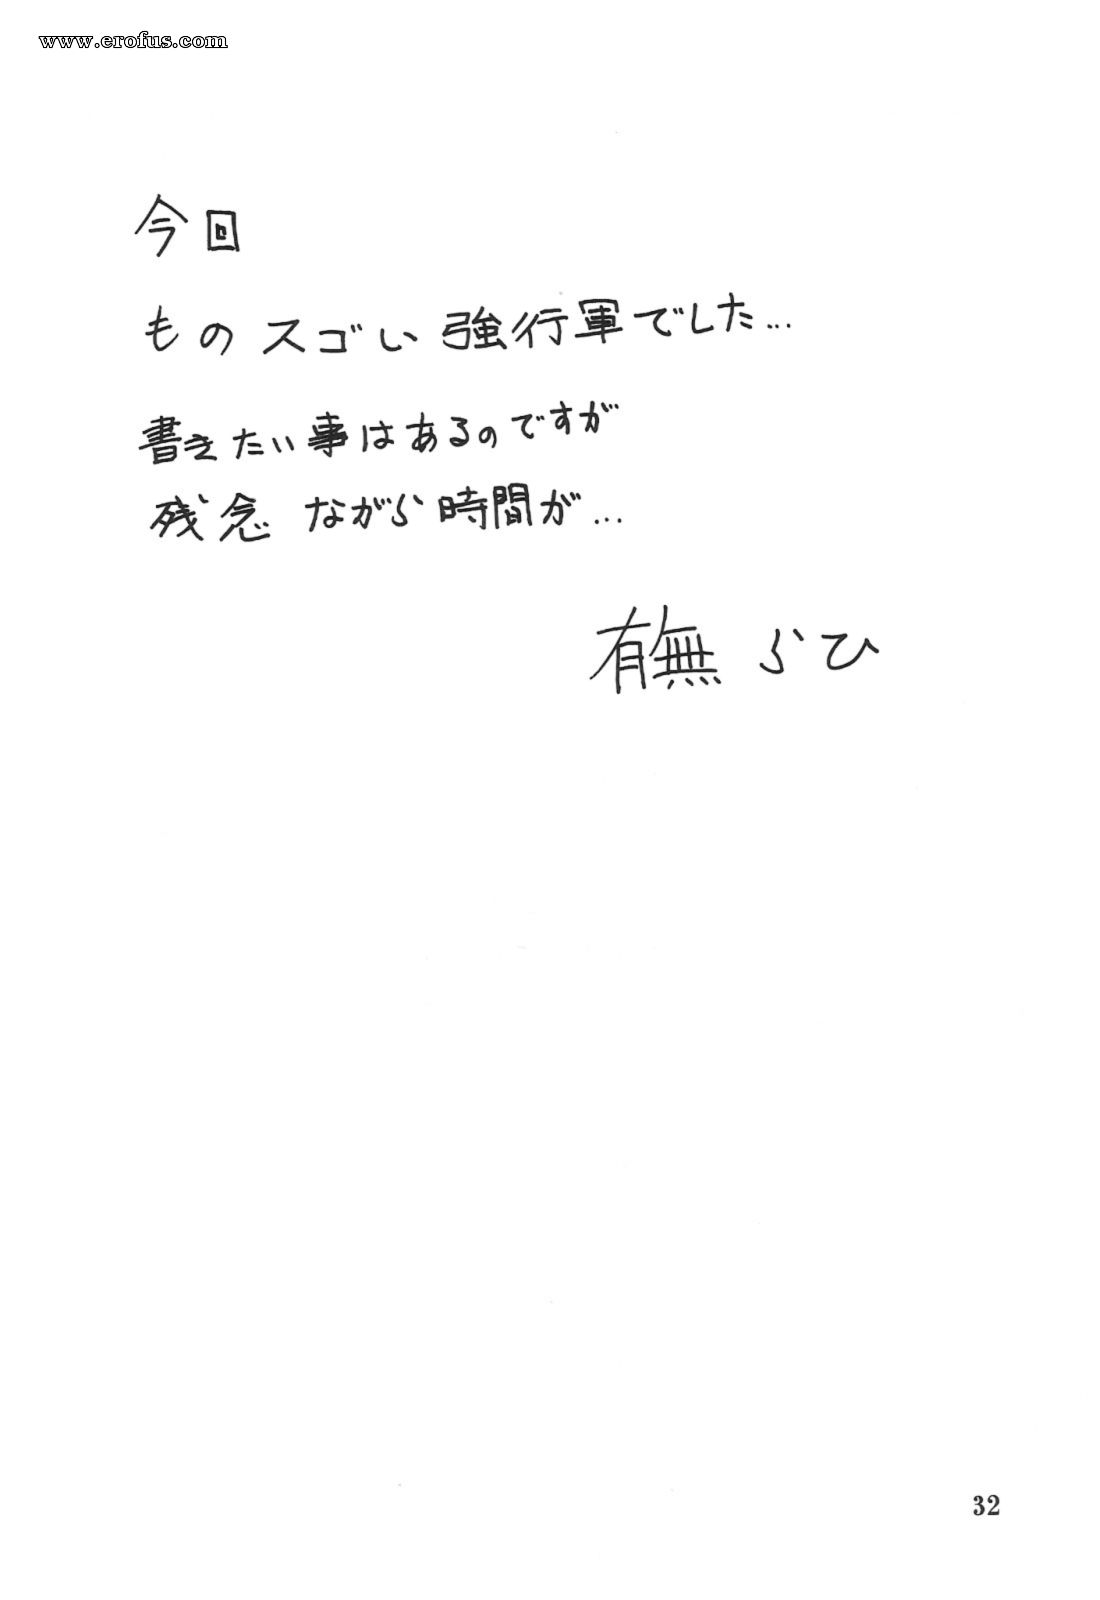 www.erofus.com
今回
ものスゴい強行軍でした...
書きたい事はあるのですが
残念ながら時間が...
有無らひ
32